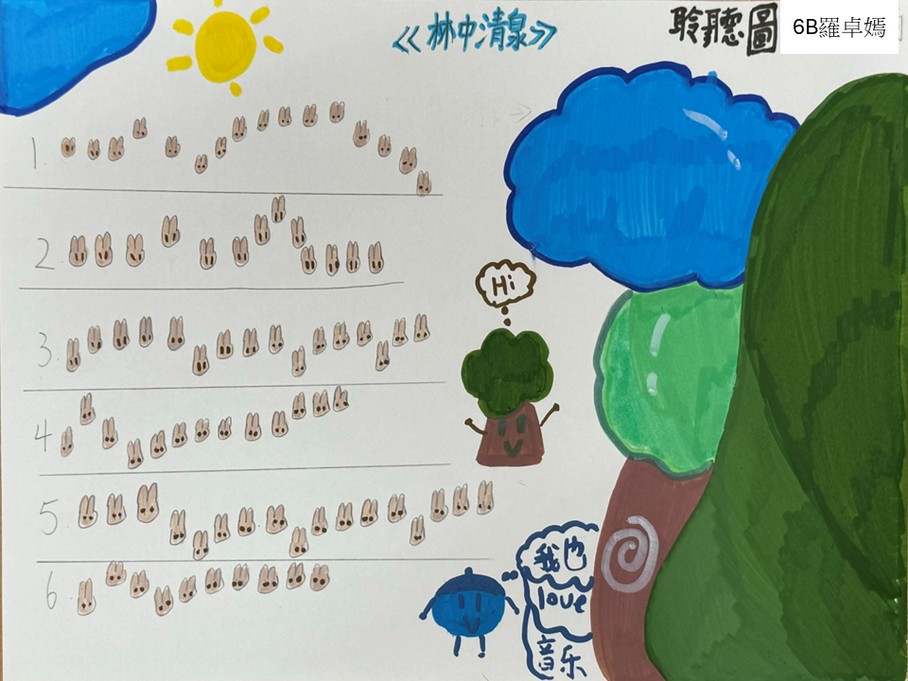 ≪林中清泉≫
聆聽圖
6B羅卓嫣
1.
2
3.
4
5.
6
Hi
我也
love
音乐